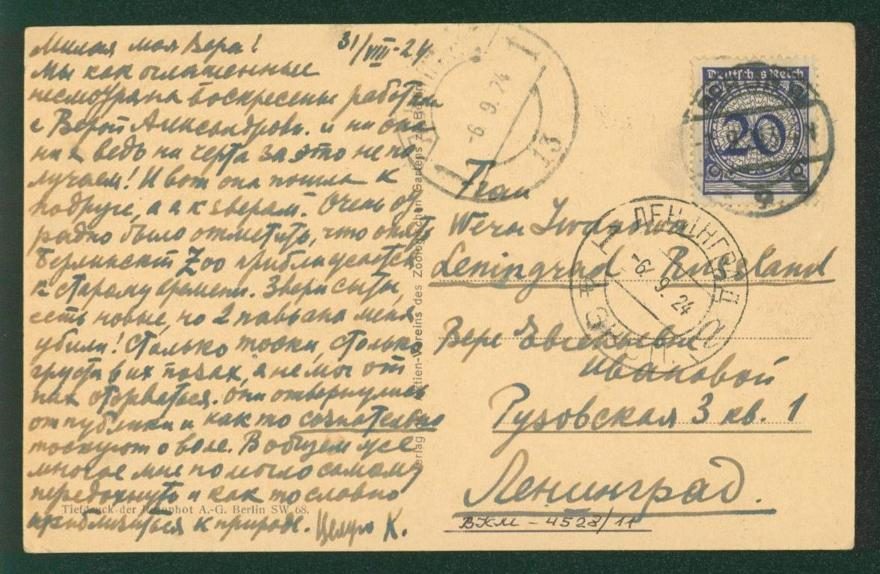 Милая моя Вера! 31/VIII-24
Мы как оглашенные
несмотря на воскресенье работали
с Верой Александровн. и ни она
ни я ведь ни черта за это не по
лучаем! И вот она пошла к
подруге, а я к зверям. Очень от
радно было отметить, что опять
Берлинский Zoo приближается
к старому времени. Звери сыты,
есть новые, но 2 павьана меня
убили! Столько тоски, столько
грусти в их позах, я не мог от
них оторваться. Они отвернулись
от публики и как то сознательно
тоскуют о воле. В общем все
многое мне помогло самому
передохнуть и как то словно
приблизиться к природе. Целую К.
Tiefdruck der Rotophot A.-G. Berlin SW 68.
Verlag des Aktien-Vereins des Zoologischen Gartens zu Berlin
Deutsches Reich
20
-6.9.24
13
ЛЕНИНГРАД
-6.9.24
Frau
Wera Iwanowa
Leningrad Russland
Вере Евгеньевне
Ивановой
Рузовская 3 кв. 1
Ленинград.
ВКМ - 4528/11